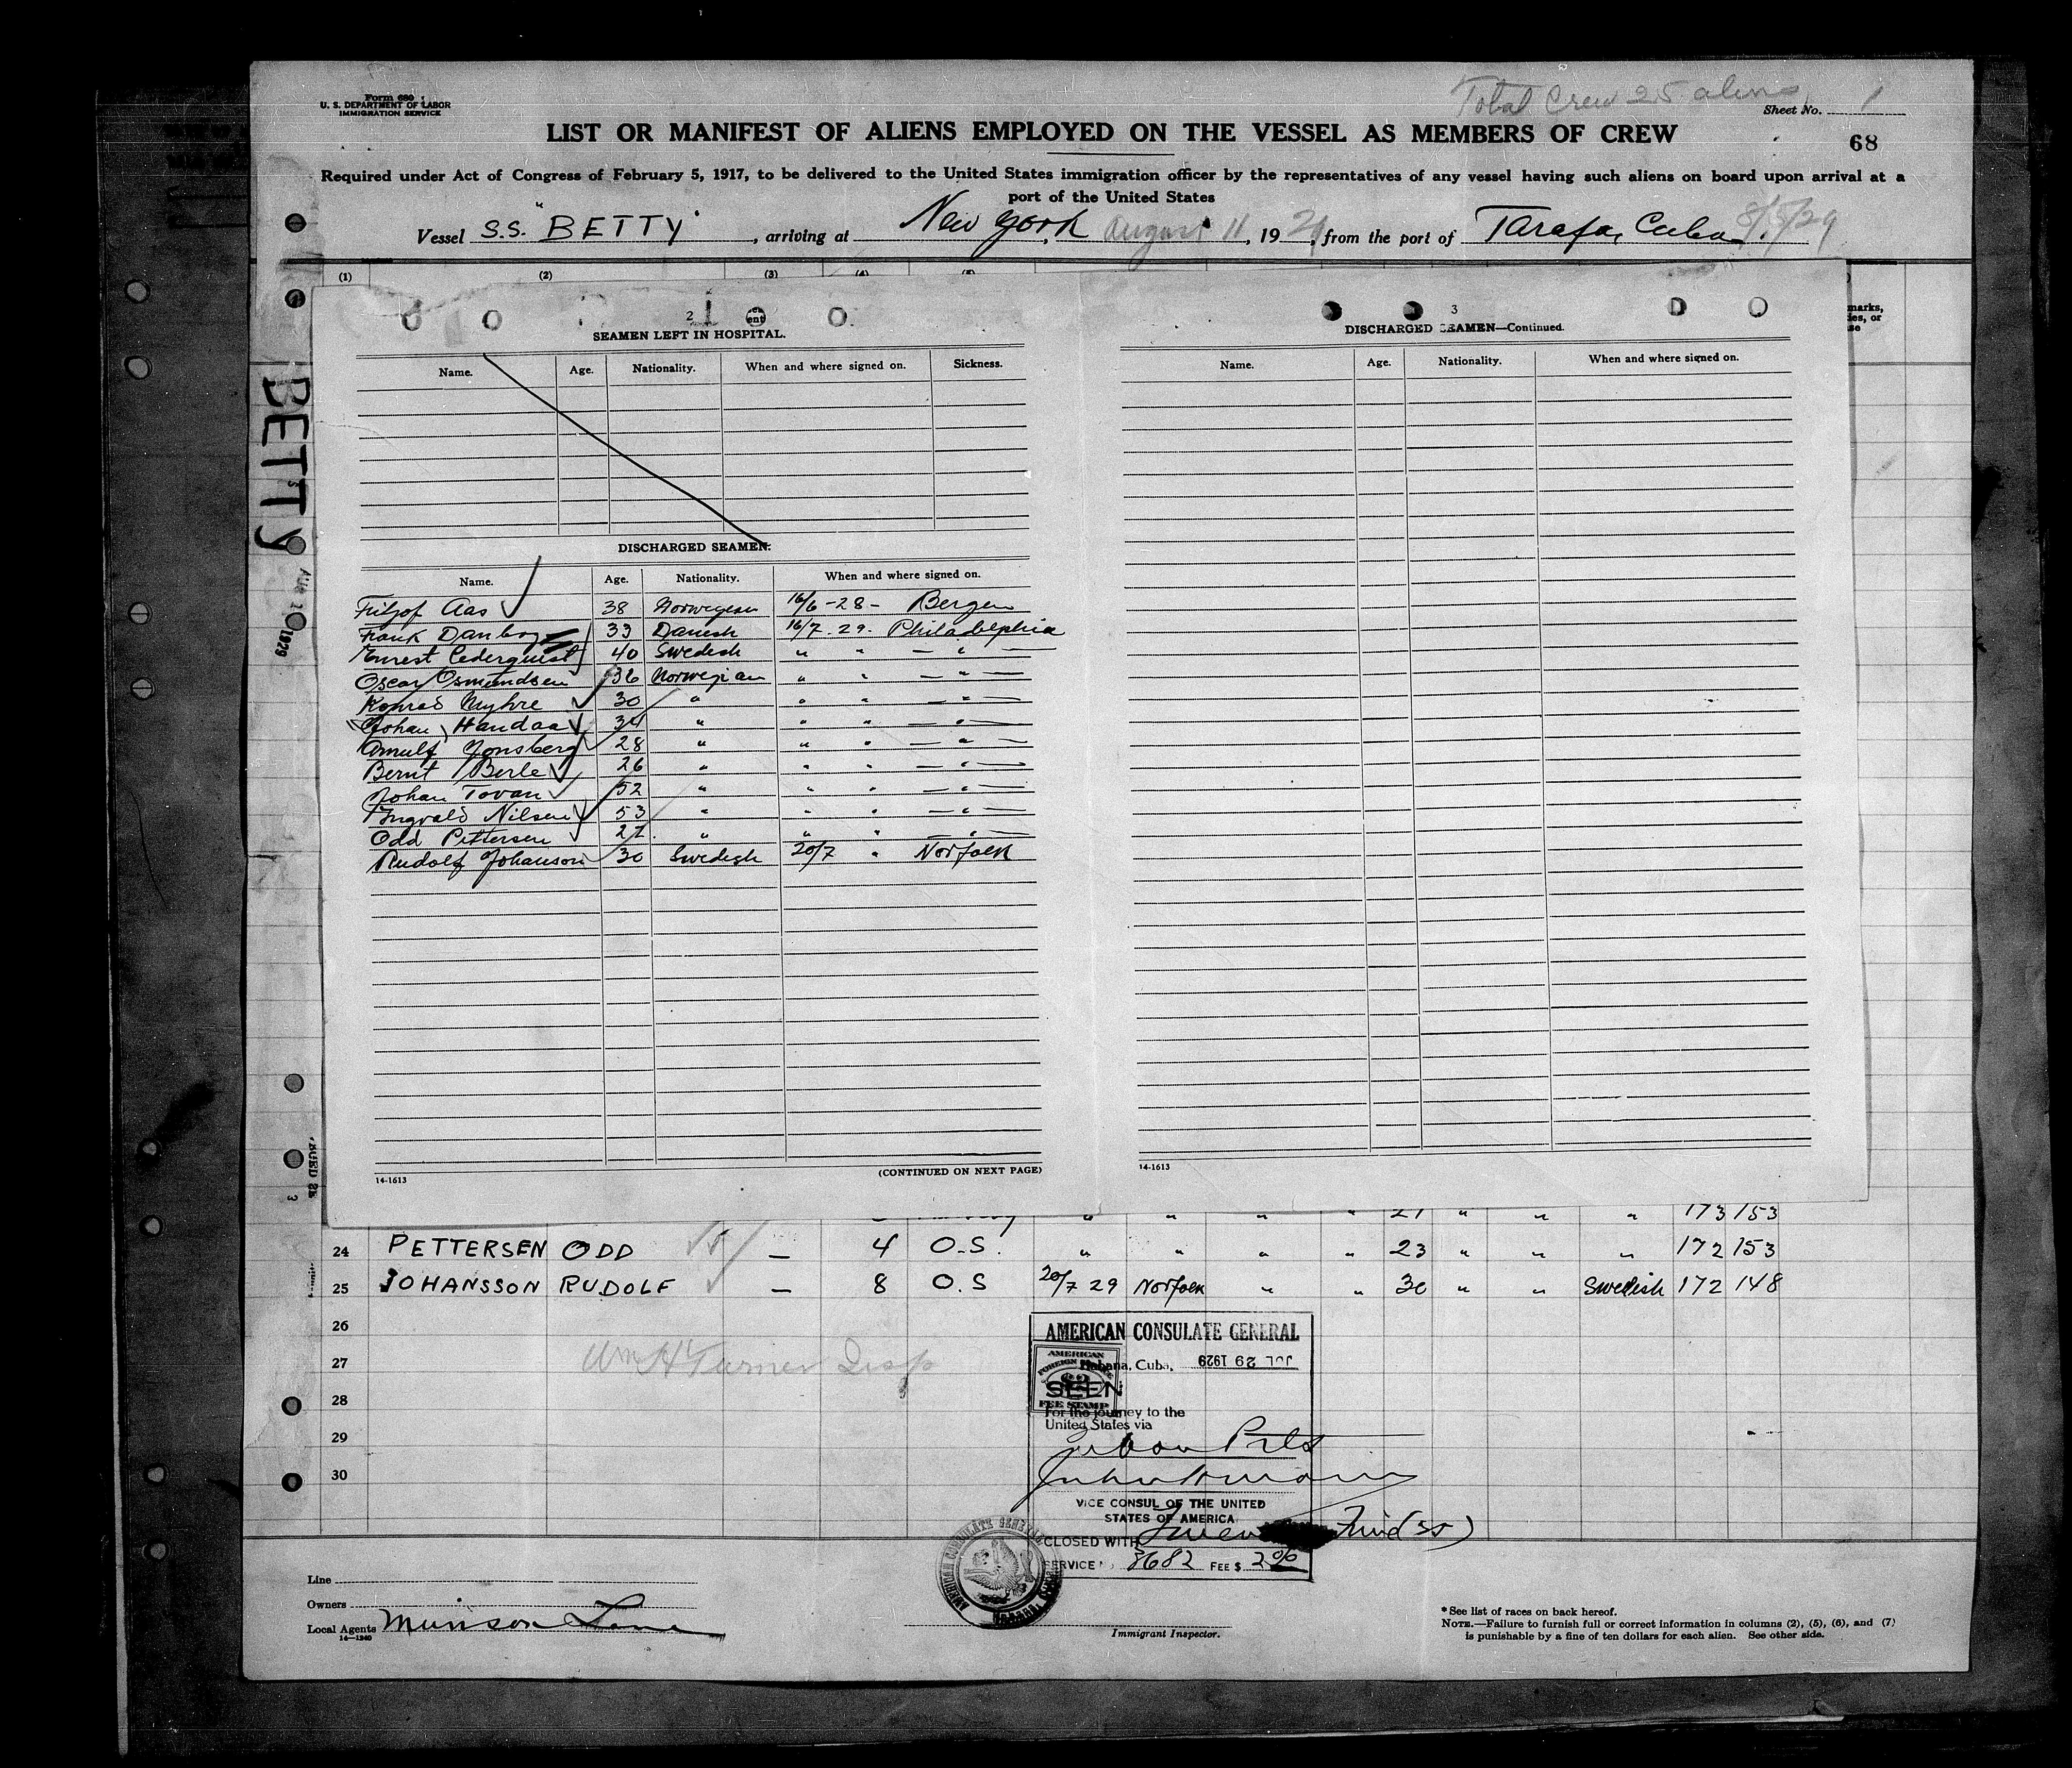 Form 680
U. S. DEPARTMENT OF LABOR
IMMIGRATION SERVICE
Total Crew 25 aliens
Sheet No. 1
LIST OR MANIFEST OF ALIENS EMPLOYED ON THE VESSEL AS MEMBERS OF CREW
68
Required under Act of Congress of February 5, 1917, to be delivered to the United States immigration officer by the representatives of any vessel having such aliens on board upon arrival at a
port of the United States
Vessel S.S. "BETTY", arriving at New York, August 11, 1929, from the port of Tarafa, Cuba
(1) (2) (3) (4) (5)
BETTY
1929
2
SEAMEN LEFT IN HOSPITAL.
Name. Age. Nationality. When and where signed on. Sickness.
DISCHARGED SEAMEN.
Name. Age. Nationality. When and where signed on.
Fritjof Aas 38 Norwegian 16/6-28- Bergen
Frank 33 Danish 16/7.29. Philadelphia
Ernest Cederquist 40 Swedish " " — " —
Oscar Osmundsen 36 Norwegian " " — " —
Konrad Myhre 30 " " " — " —
Johan Handaa 34 " " " — " —
Arnulf Jonsberg 28 " " " — " —
Bernt Berle 26 " " " — " —
Johan Tovan 52 " " " — " —
Ingvald Nilsen 53 " " " — " —
Odd Pettersen " " " — " —
Rudolf Johanson 30 Swedish 20/7 " Norfolk
(CONTINUED ON NEXT PAGE)
14-1613
3
DISCHARGED SEAMEN—Continued.
Name. Age. Nationality. When and where signed on.
14-1613
marks,
or
" " " " 21 " " " 173 153
24 PETTERSEN ODD — 4 O.S. " " " " 23 " " " 172 153
25 JOHANSSON RUDOLF — 8 O.S 20/7 29 Norfolk " " 30 " " Swedish 172 148
26
27 Wm H Turner Insp
28
29
30
AMERICAN CONSULATE GENERAL
Habana, Cuba, JUL 29 1929
AMERICAN
FOREIGN SERVICE
$2
FEE STAMP
SEEN
For the journey to the
United States via
VICE CONSUL OF THE UNITED
STATES OF AMERICA
CLOSED WITH
SERVICE No 8682 FEE $ 2.00
AMERICAN CONSULATE GENERAL
HABANA, CUBA
Line
Owners
Local Agents Munson Line
14—1240
Immigrant Inspector.
* See list of races on back hereof.
NOTE.—Failure to furnish full or correct information in columns (2), (5), (6), and (7)
is punishable by a fine of ten dollars for each alien. See other side.